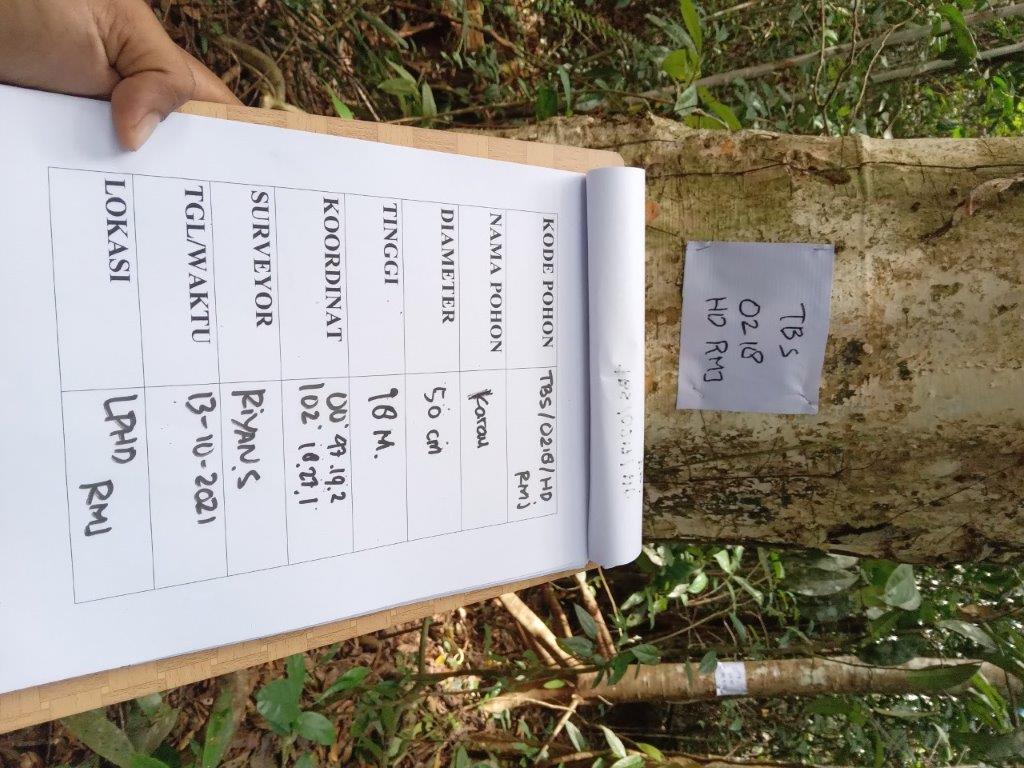 KODE POHON TBS/0218/HD
RMJ
NAMA POHON Karau
DIAMETER 50 cm
TINGGI 18 M.
KOORDINAT 00° 47.19.2
102° 18.27.1
SURVEYOR RiYAN.S
TGL/WAKTU 13-10-2021
LOKASI LPHD RMJ
TBS
0218
HD RMJ